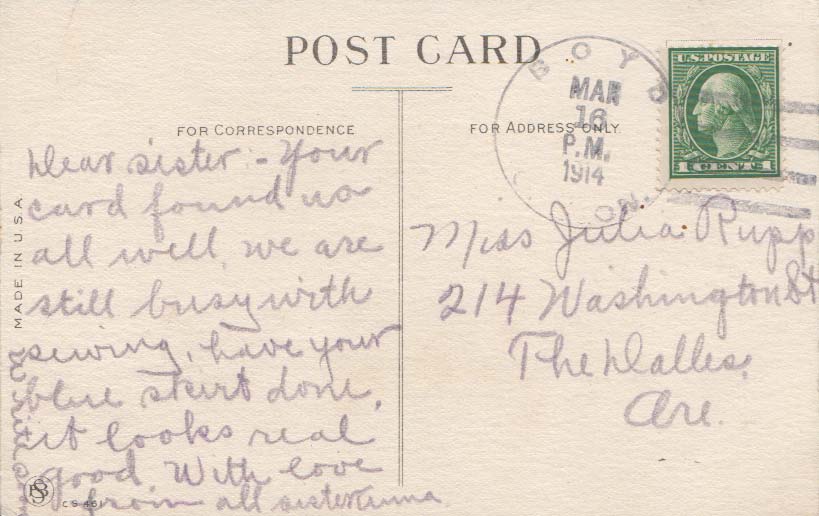 POST CARD
FOR CORRESPONDENCE
FOR ADDRESS ONLY
BOYD
MAR
16
P.M.
1914
U.S. POSTAGE
1 CENTS 1
Dear sister - Your
card found us
all well, we are
still busy with
sewing, have your
blue skirt done,
it looks real
good. With love
from all sister
Miss Julia Rupp
214 Washington St
The Dalles,
Ore.
MADE IN U.S.A.
CS 461